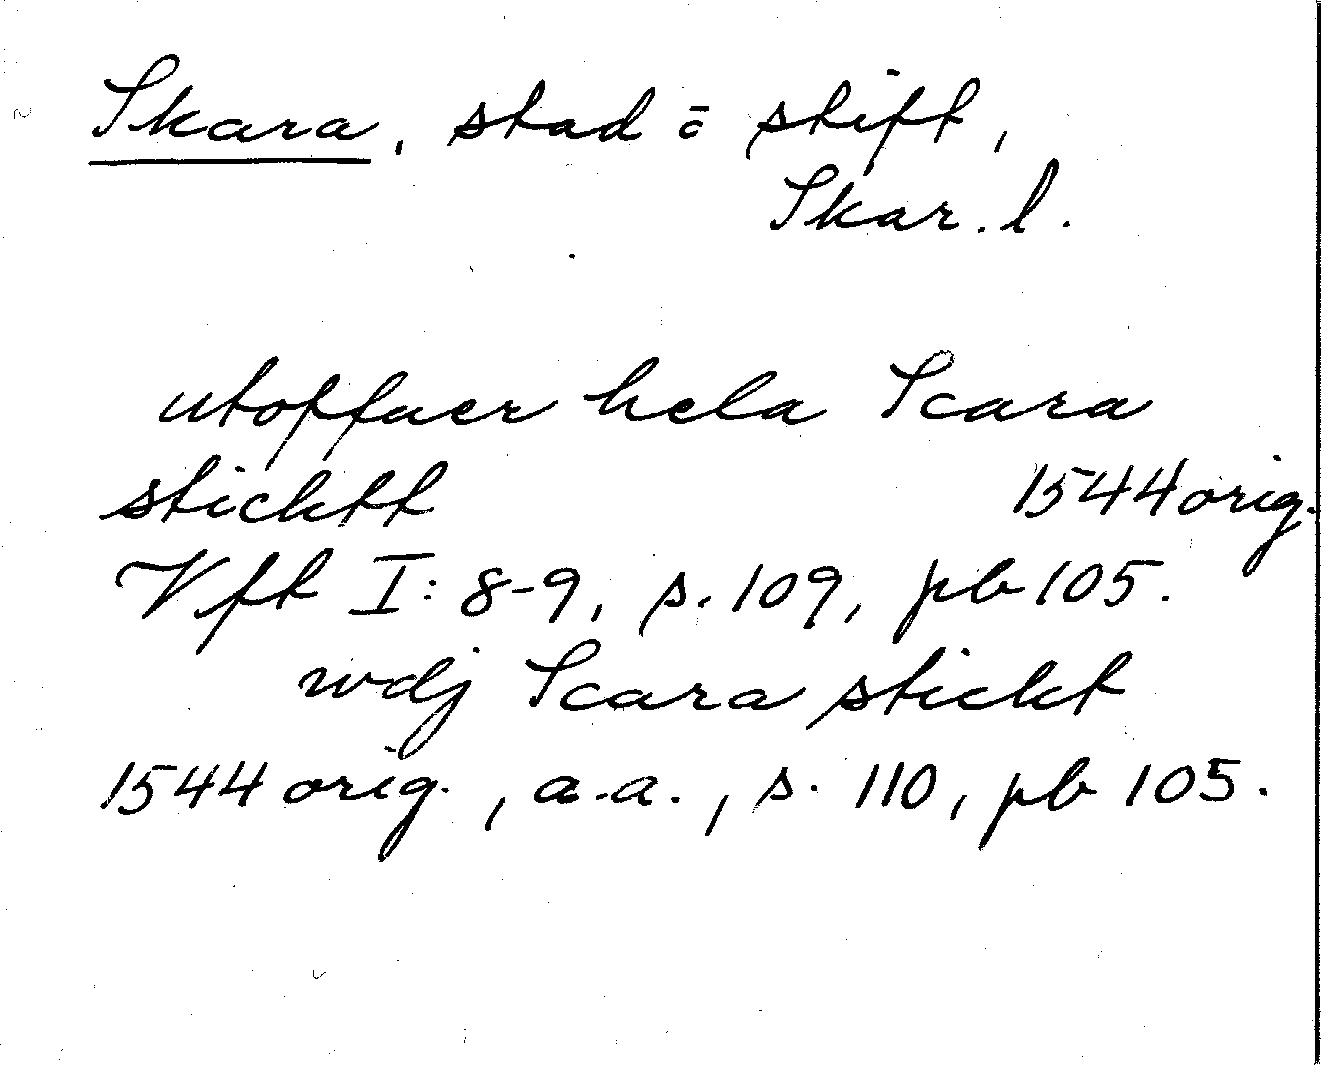 Skara, stad o stift,
Skar. l.
utoffuer hela Scara
sticktt 1544 orig.
Vft I: 8-9, s. 109, pb 105.
wdj Scara stickt
1544 orig., a.a., s. 110, pb 105.